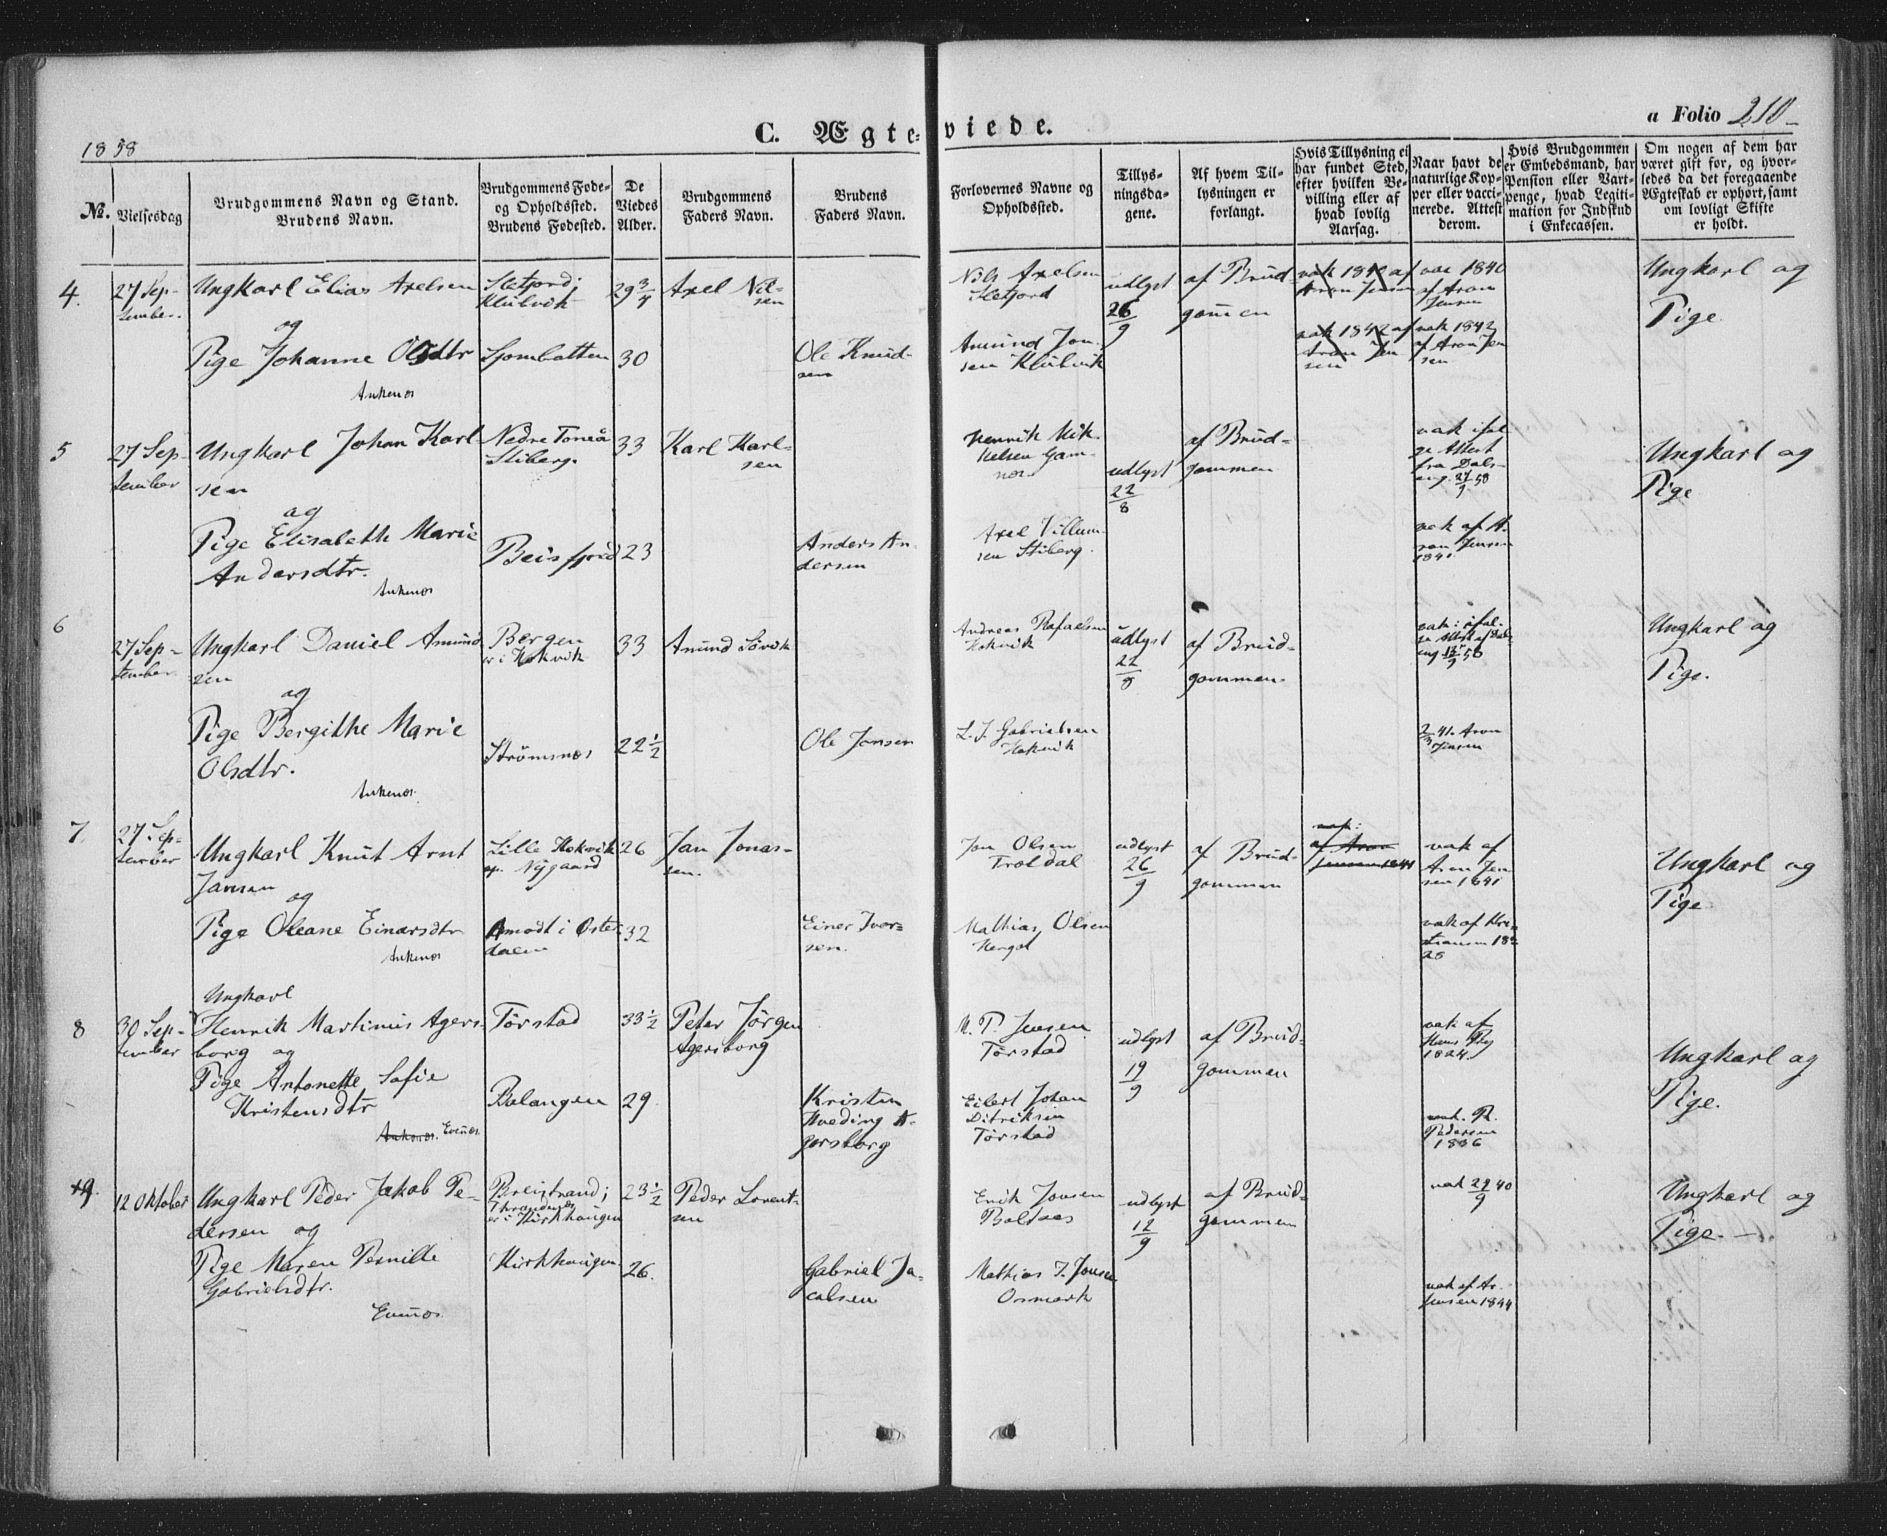 1858
C. Ægte-
viede.
a Folio 210
No.
Vielsesdag
Brudgommens Navn og Stand.
Brudens Navn.
Brudgommens Føde-
og Opholdssted.
Brudens Fødested.
De
Viedes
Alder.
Brudgommens
Faders Navn.
Brudens
Faders Navn.
Forlovernes Navne og
Opholdssted.
Tillys-
ningsda-
gene.
Af hvem Til-
lysningen er
forlangt.
Hvis Tillysning ei
har fundet Sted,
efter hvilken Be-
villing eller af
hvad lovlig
Aarsag.
Naar havt de
naturlige Kop-
per eller vacci-
nerede. Attest
derom.
Hvis Brudgommen
er Embedsmand, har
Pension eller Vart-
penge, hvad Legiti-
mation for Indskud
i Enkecassen.
Om nogen af dem har
været gift før, og hvor-
ledes da det foregaaende
Ægteskab er ophørt, samt
om lovligt Skifte
er holdt.
4.
27 Sep-
tember.
Ungkarl Elias Axelsen
og
Pige Johanne Olsdtr
Ankenes
Sletjord;
Klubvik
Sjombotten
29 3/4
30
Axel Nil-
sen
Ole Knud-
sen
Nils Axelsen
Sletjord
Amund Jon-
sen Klubvik
udlyst
26
9
af Brud-
gommen
vak 1840 af
Aron Jensen
vak 1842 af
Aron Jen
sen
vac 1840
af Aron
Jensen
vak 1842
af Aron Jen
sen
Ungkarl og
Pige.
5
27 Sep-
tember
Ungkarl Johan Karl-
sen
og
Pige Elisabeth Marie
Andersdtr.
Ankenes
Nedre Torneå
Stiberg.
Beisfjord
33
23
Karl Karl-
sen
Anders An-
dersen
Henrik Mik-
kelsen Gam-
nes
Axel Villum-
sen Stiberg.
udlyst
22
8
af Brud-
gommen
vak iføl
ge Attest
fra Dals-
vak af A-
ron Jensen
1841
Ungkarl og
Pige
6
27 Sep-
tember
Ungkarl Daniel Amund-
sen
og
Pige Bergithe Marie
Olsdtr.
Ankenes.
Bergen
er i Hokvik
Strømsnes
33
22 1/2
Amund Søvik
Ole Jansen
Andreas Rafaelsen
Hokvik
L. J. Gabrielsen
Hokvik
udlyst
22
8
af Brud-
gommen.
41. Aron
Jensen
Ungkarl og
Pige.
7
27 Sep-
tember
Ungkarl Knut Arnt
Jansen
og
Pige Oleane Einarsdtr
Ankenes
Lille Hokvik
op. Nygaard
Åmodt i Øster-
dalen
26
32
Jan Jonas-
sen.
Einer Iver-
sen.
Jon Olsen
Troldal
Mathias Olsen
Herget
udlyst
26
9
af Brud-
gommen
vak:
af Aron
Jensen 1841
vak af
Aron Jen
sen 1841
vak af Kri-
stiansen 18
28
Ungkarl og
Pige
8
30 Sep-
tember
Ungkarl
Henrik Martinus Agers-
borg og
Pige Antonette Sofie
Kristensdtr
Ankenes. Evenes
Tørstad
Balangen
33 1/2
29
Peter Jørgen
Agersborg
Kristen
Hveding A-
gersborg
N. P. Jensen
Tørstad
Eilert Johan
Ditriksen
Tørstad
udlyst
19
9
af Brud-
gommen
vak af
Hans
1824
vak. P.
Pedersen
1836
Ungkarl og
Pige.
9.
12 Oktober
Ungkarl Peder Jakob Pe-
dersen og
Pige Maren Pernille
Gabrielsdtr.
Evenes
Breistrand;
Throndenes
er i Kirkhaugen
Kirkhaugen
23 1/2
26.
Peder Lorent-
sen
Gabriel Ja-
cobsen
Erik Jonsen
Boltaas
Mathias J. Jonsen
Osmark
udlyst
12
9
af Brud-
gommen
vak 29 40
9
vak af Ar.
Jensen 1844
Ungkarl og
Pige.